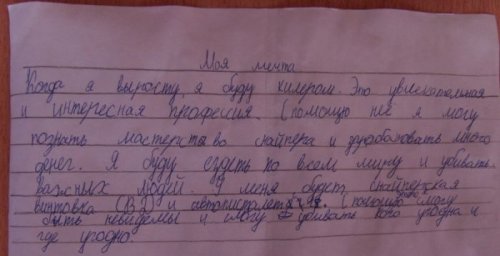 Моя мечта
Когда я вырасту, я буду килером. Это увлекательная
и интересная профессия. С помощью неё я могу
познать мастерство снайпера и зарабатовать много
денег. Я буду ездеть по всем миру и убивать
важных людей. У меня будет снайперская
винтовка (ВД) и автопистолет. С помощью смогу
быть невидемы и смогу убивать кого угодна и
где угодно.